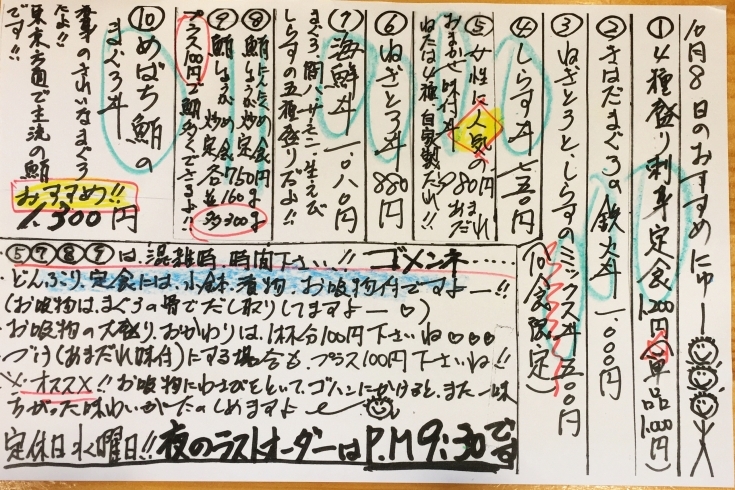 10月8日のおすすめにゅー
① 4種盛り刺身定食 1,200円(単品1,000円)
② きはだまぐろの鉄火丼 1,000円
③ ねぎとろと、しらすのミックス丼 500円
(10食限定)
④ しらす丼 750円
⑤ 女性に人気の
おまかせ味付丼 980円
ねたは4種 自家製だれ!!
⑥ ねぎとろ丼 880円
⑦ 海鮮丼 1,080円
まぐろ、間八、サーモン、生えび
しらすの五種盛りだよ!!
⑧
⑨
プラス100円で
⑩ めばち鮪の
まぐろ丼
赤身のきれいなまぐろ
だよ!!
東京方面で主流の鮪
です!!
おすすめ!!
1,300円
⑤⑦⑧⑨は、混雑時、時間下さい…!! ゴメンネ…
・どんぶり、定食には、小鉢、香物、お吸物付ですよー!!
(お吸物は、まぐろの骨でだし取りしてますよー♡)
・お吸物の大盛り、おかわりは、1杯分100円下さいね♡♡♡
・づけ(あまだれ味付)にする場合も、プラス100円下さいね!!
※オススメ!! お吸物にわさびをといて、ゴハンにかけると、また一味
ちがった味わいがたのしめますよ
定休日水曜日!! 夜のラストオーダーはP.M9:30です